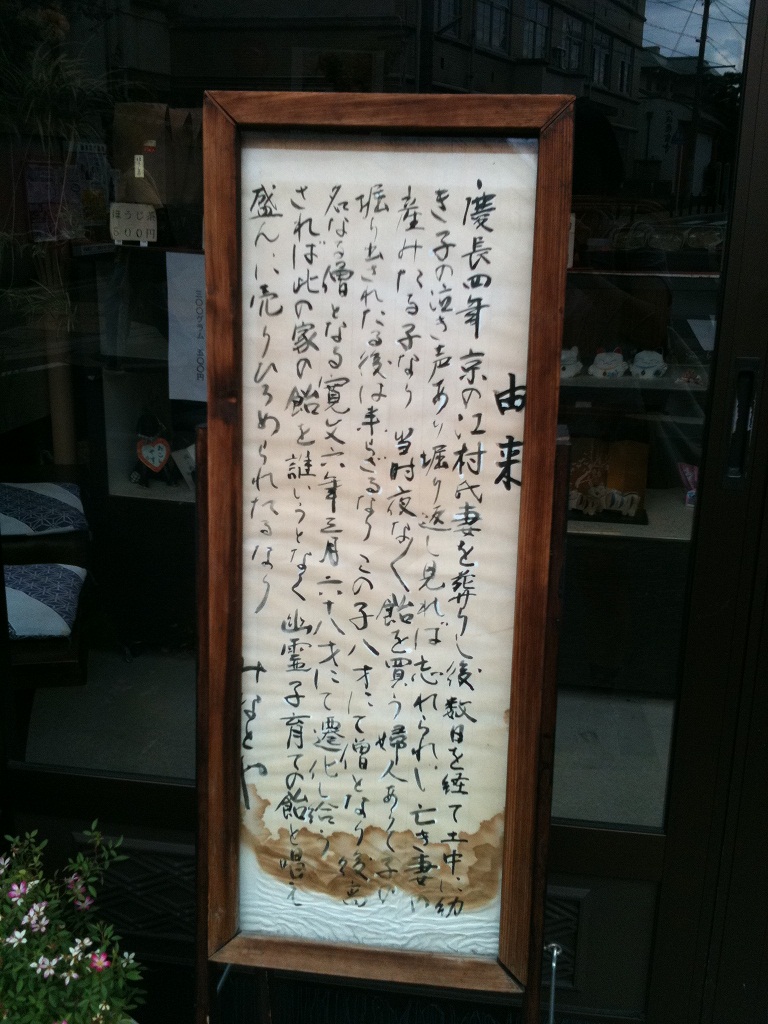 由来
慶長四年 京の江村氏妻を葬りし後数日を経て土中に幼
き子の泣き声あり堀り返し見れば忘れられし亡き妻の
産みたる子なり 当时夜な〱飴を買う婦人ありて子の
堀り出されたる後は来らざるなり この子八才にて僧となり後高
名なる僧となる寛文六年三月六十八才にて遷化し給う
されば此の家の飴を誰いうとなく幽霊子育ての飴と唱え
盛んに売りひろめられたるなり
みなとや
ほうじ茶
500円